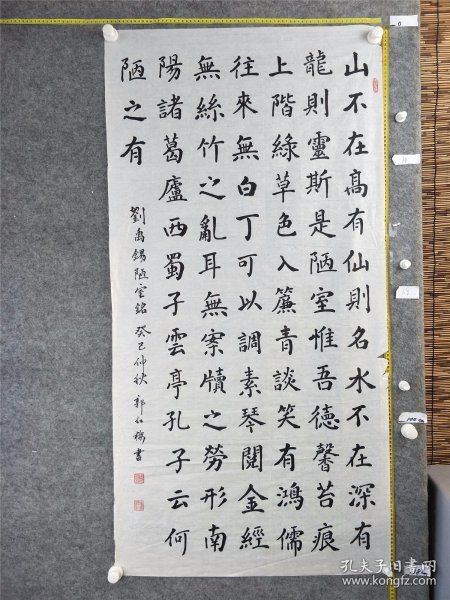 山不在髙有仙則名水不在深有
龍則靈斯是陋室惟吾徳馨苔痕
上階綠草色入簾青談笑有鴻儒
往來無白丁可以調素琴閱金經
無絲竹之亂耳無案牘之勞形南
陽諸葛廬西蜀子雲亭孔子云何
陋之有
劉禹錫陋室銘 癸巳仲秋 郭仁梅書
孔夫子旧书网
https://www.kongfz.com